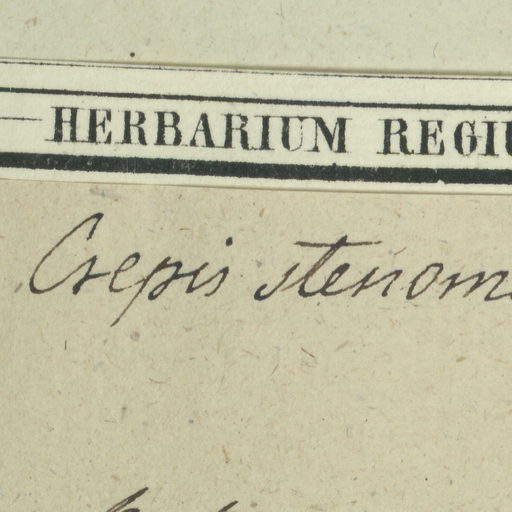 HERBARIUM REGIU
Crepis stenom